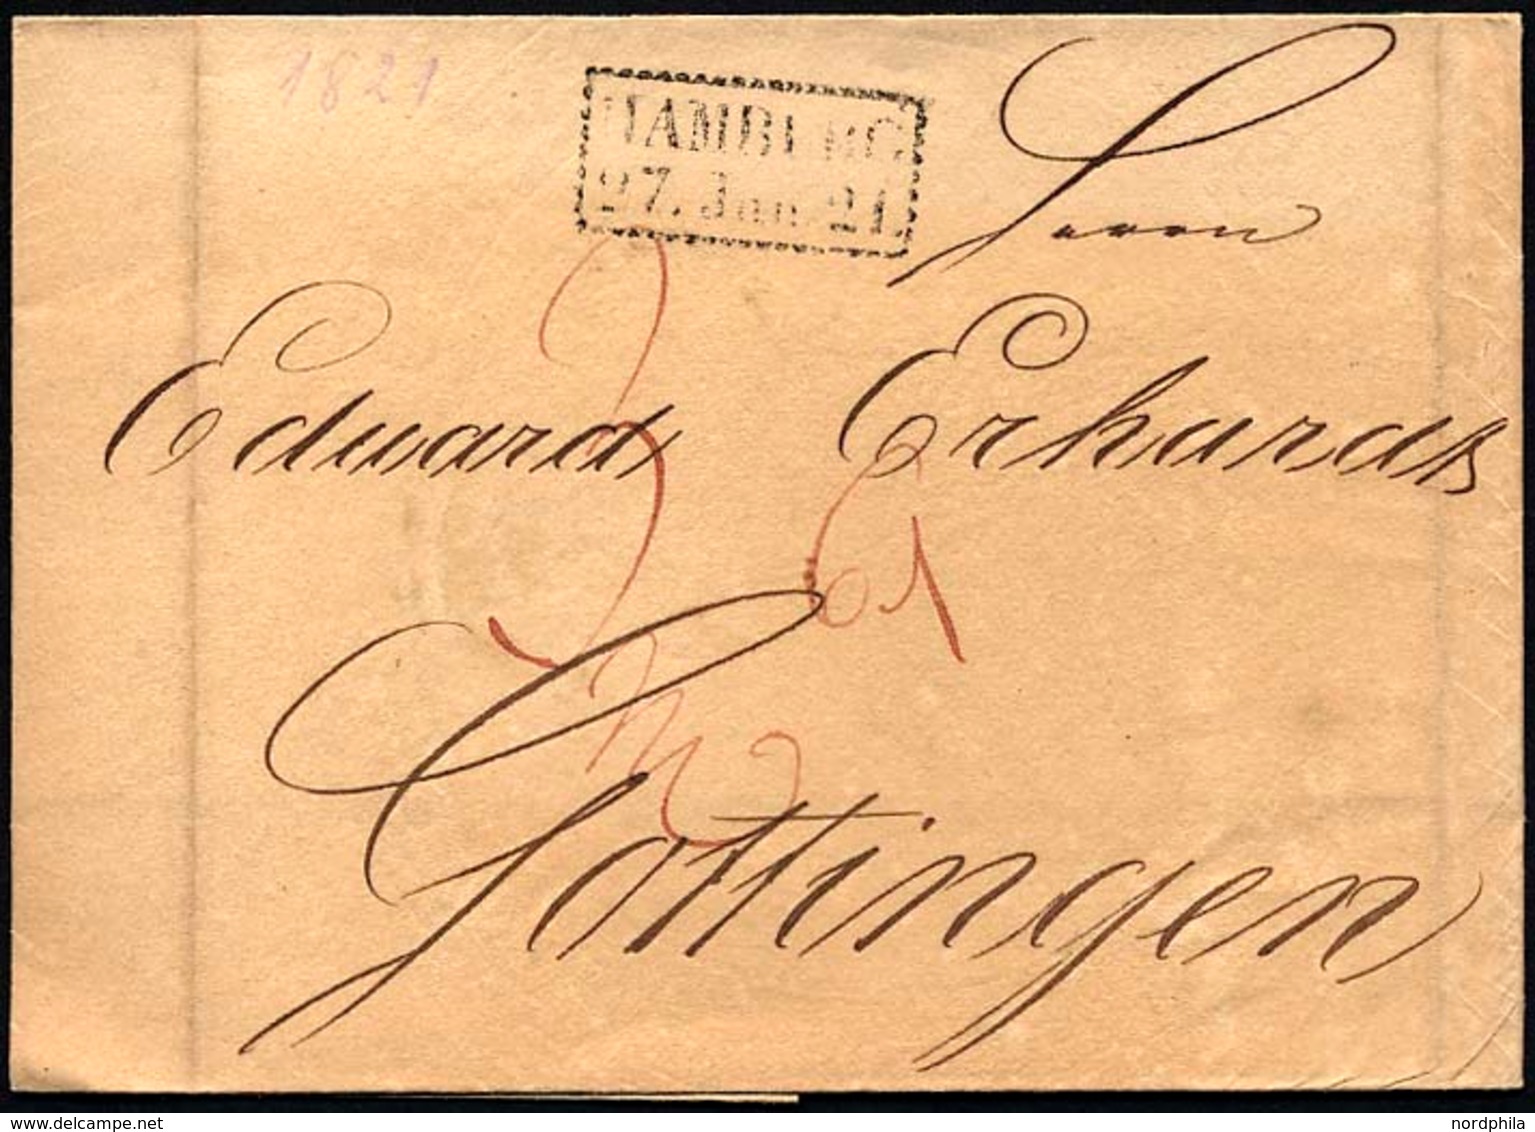 1821
HAMBURG
27. Jan. 21.
Herrn
Eduard Erhardt
Gottingen
www.delcampe.net
nordphila